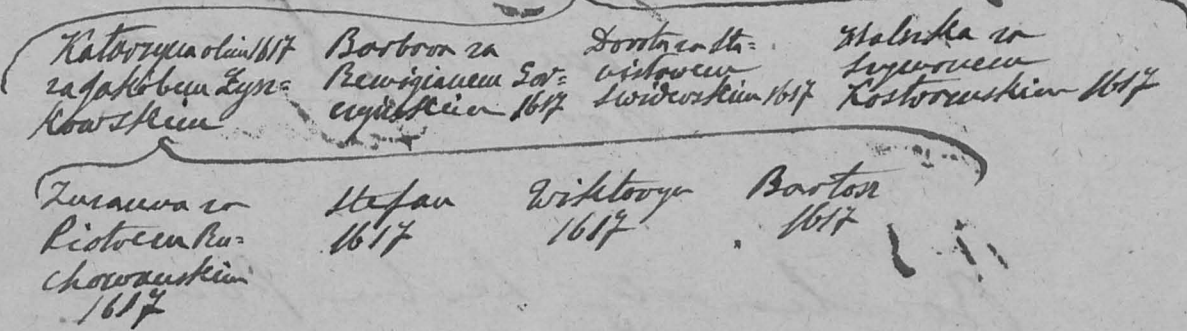 Katarzyna olim 1617
za Jakóbem Łysz=
kowskim
Barbara za
Remigianem Gor=
czyńskim 1617
Dorota za Sta=
nisławem
Swiderskim 1617
Halszka za
Szymonem
Kostrowskim 1617
Zuzanna za
Piotrem Ru=
chowauskim
1617
Stefan
1617
Wiktoryn
1617
Bartosz
1617